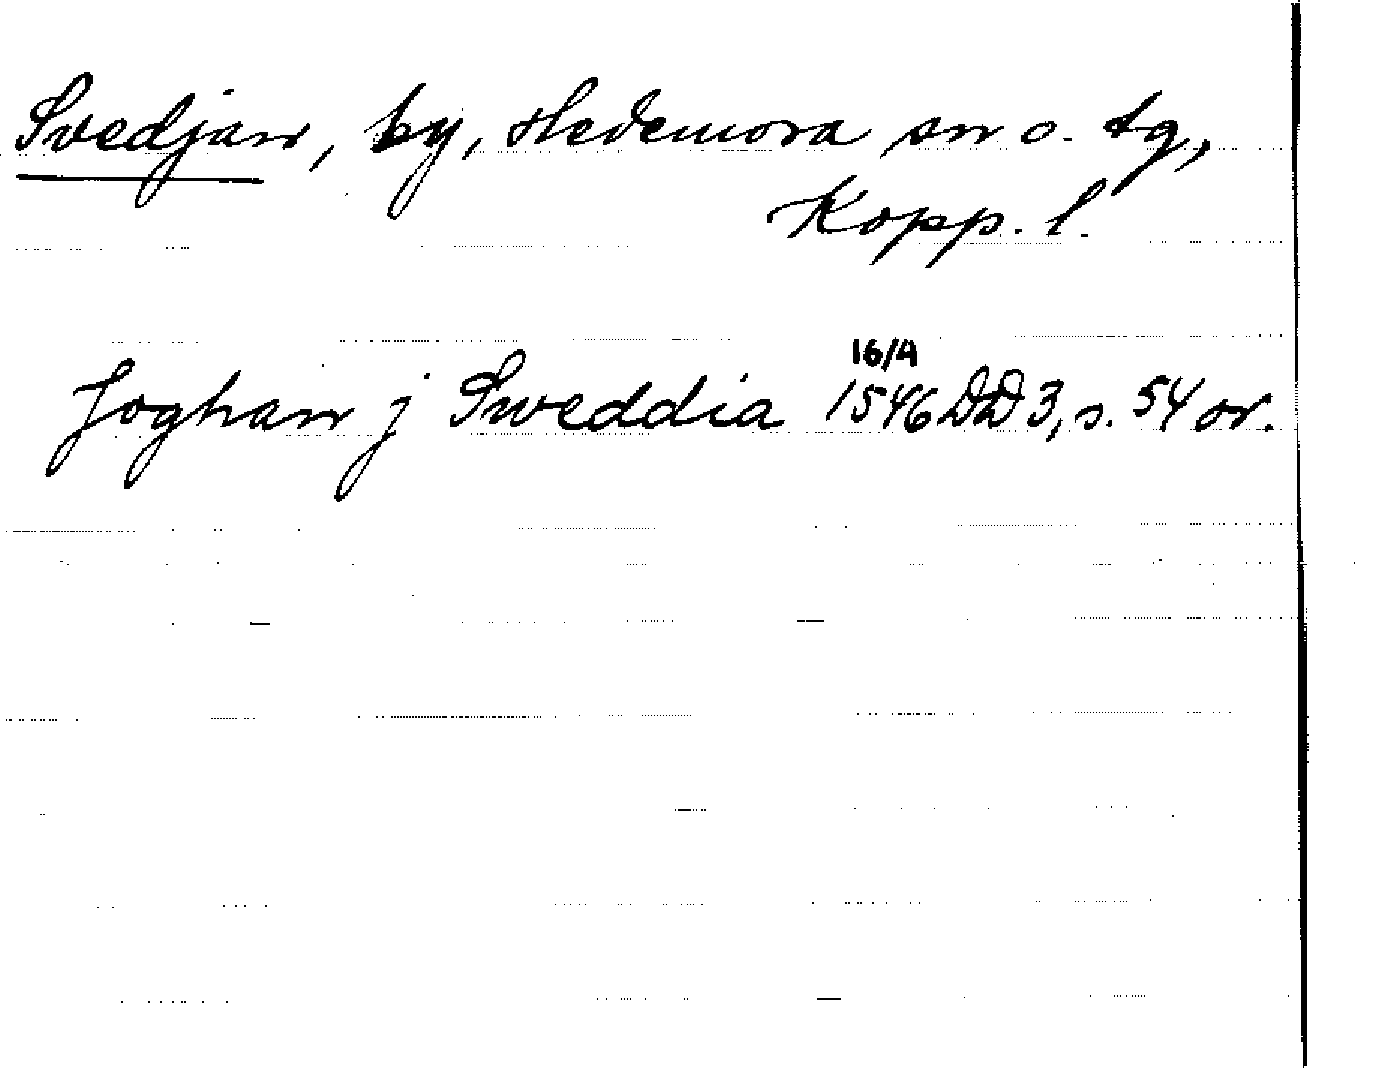 Svedjan, by, Hedemora sn o. tg,
Kopp. l.
16/4
Joghan j Sweddia 1546 DD 3, s. 54 or.